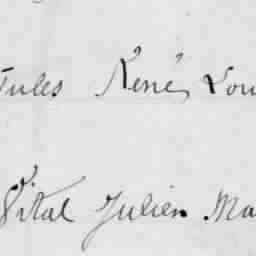 Jules René Lou
Vital Julien Ma